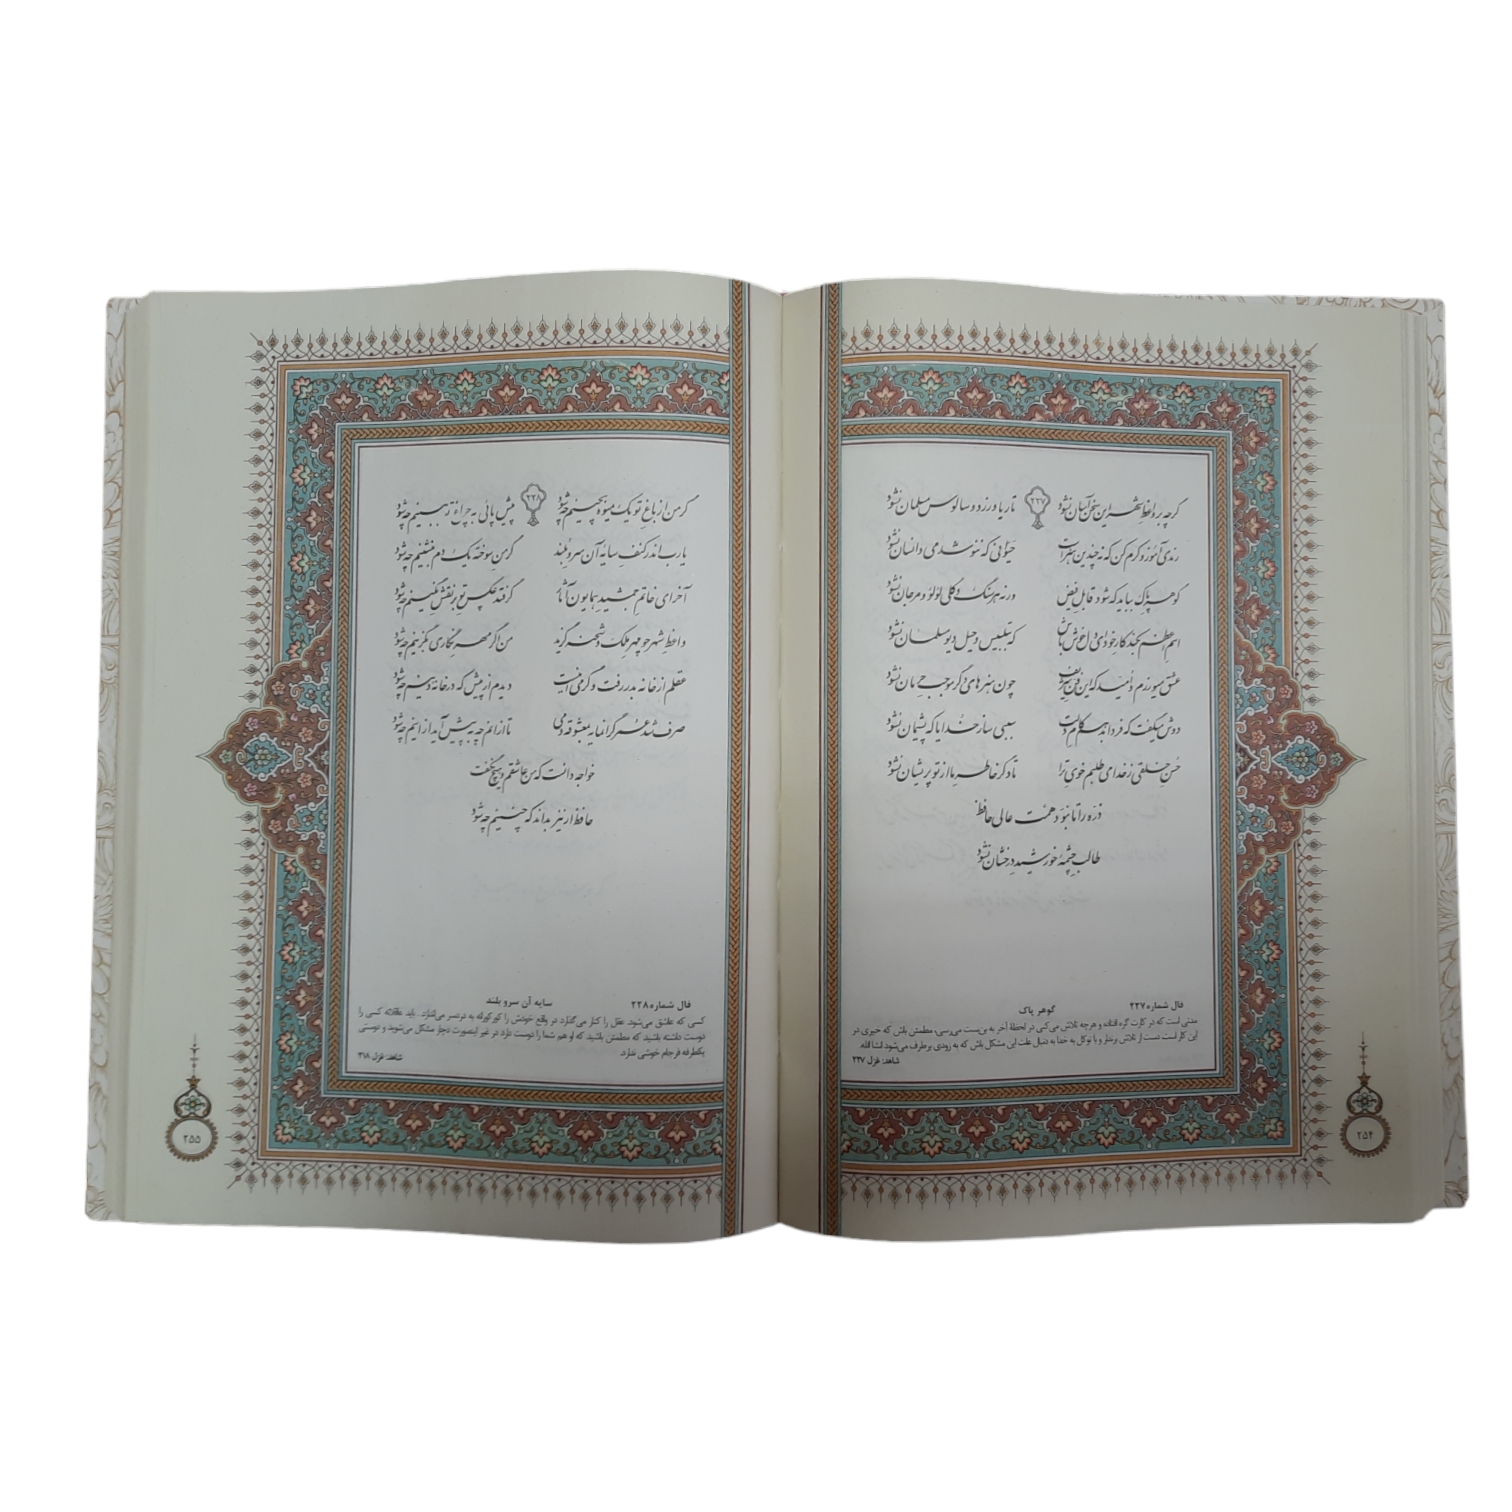 ۲۲۷
گرچه بر واعظ شهر این سخن آسان نشود تا ریا ورزد و سالوس مسلمان نشود
رندی آموز و کرم کن که نه چندین هنرست حیوانی که ننوشد می و انسان نشود
گوهر پاک بباید که شود قابل فیض ورنه هر سنگ و گلی لؤلؤ و مرجان نشود
اسم اعظم بکند کار خود ای دل خوش باش که بتلبیس و حیل دیو سلمان نشود
عشق میورزم و امید که این فن شریف چون هنرهای دگر موجب حرمان نشود
دوش میگفت که فردا بدهم کام دلت سببی ساز خدایا که پشیمان نشود
حسن خلقی ز خدا می طلبم خوی ترا تا دگر خاطر ما از تو پریشان نشود
ذره را تا نبود همت عالی حافظ
طالب چشمهٔ خورشید درخشان نشود
فال شماره ۲۲۷ گوهر پاک
مدتی است که در کارت گره افتاده و هرچه تلاش می‌کنی در لحظهٔ آخر به بن‌بست می‌رسی، مطمئن باش که خیری در
این کار است دست از تلاش برندار و با توکل به خدا به دنبال علت این مشکل باش که به زودی برطرف می‌شود انشا الله.
شاهد: غزل ۲۲۷
۲۵۴
۲۲۸
گر من از باغ تو یک میوه بچینم چه شود پیش پائی به چراغ تو ببینم چه شود
یارب اندر کنف سایه آن سرو بلند گر من سوخته یک دم بنشینم چه شود
آخر ای خاتم جمشید همایون آثار گر فتد عکس تو بر نقش نگینم چه شود
واعظ شهر چو مهر ملک و شحنه گزید من اگر مهر نگاری بگزینم چه شود
عقلم از خانه بدر رفت و گر می اینست دیدم از پیش که در خانه دینم چه شود
صرف شد عمر گرانمایه بمعشوقه و می تا از آنم چه به پیش آید از اینم چه شود
خواجه دانست که من عاشقم و هیچ نگفت
حافظ ار نیز بداند که چنینم چه شود
فال شماره ۲۲۸ سایه آن سرو بلند
کسی که عاشق می‌شود، عقل را کنار می‌گذارد در واقع خودش را کورکورانه به دردسر می‌اندازد. باید عاقلانه کسی را
دوست داشته باشید که مطمئن باشید که او هم شما را دوست دارد در غیر اینصورت دچار مشکل می‌شوید و دوستی
یکطرفه فرجام خوشی ندارد. شاهد: غزل ۳۱۸
۲۵۵